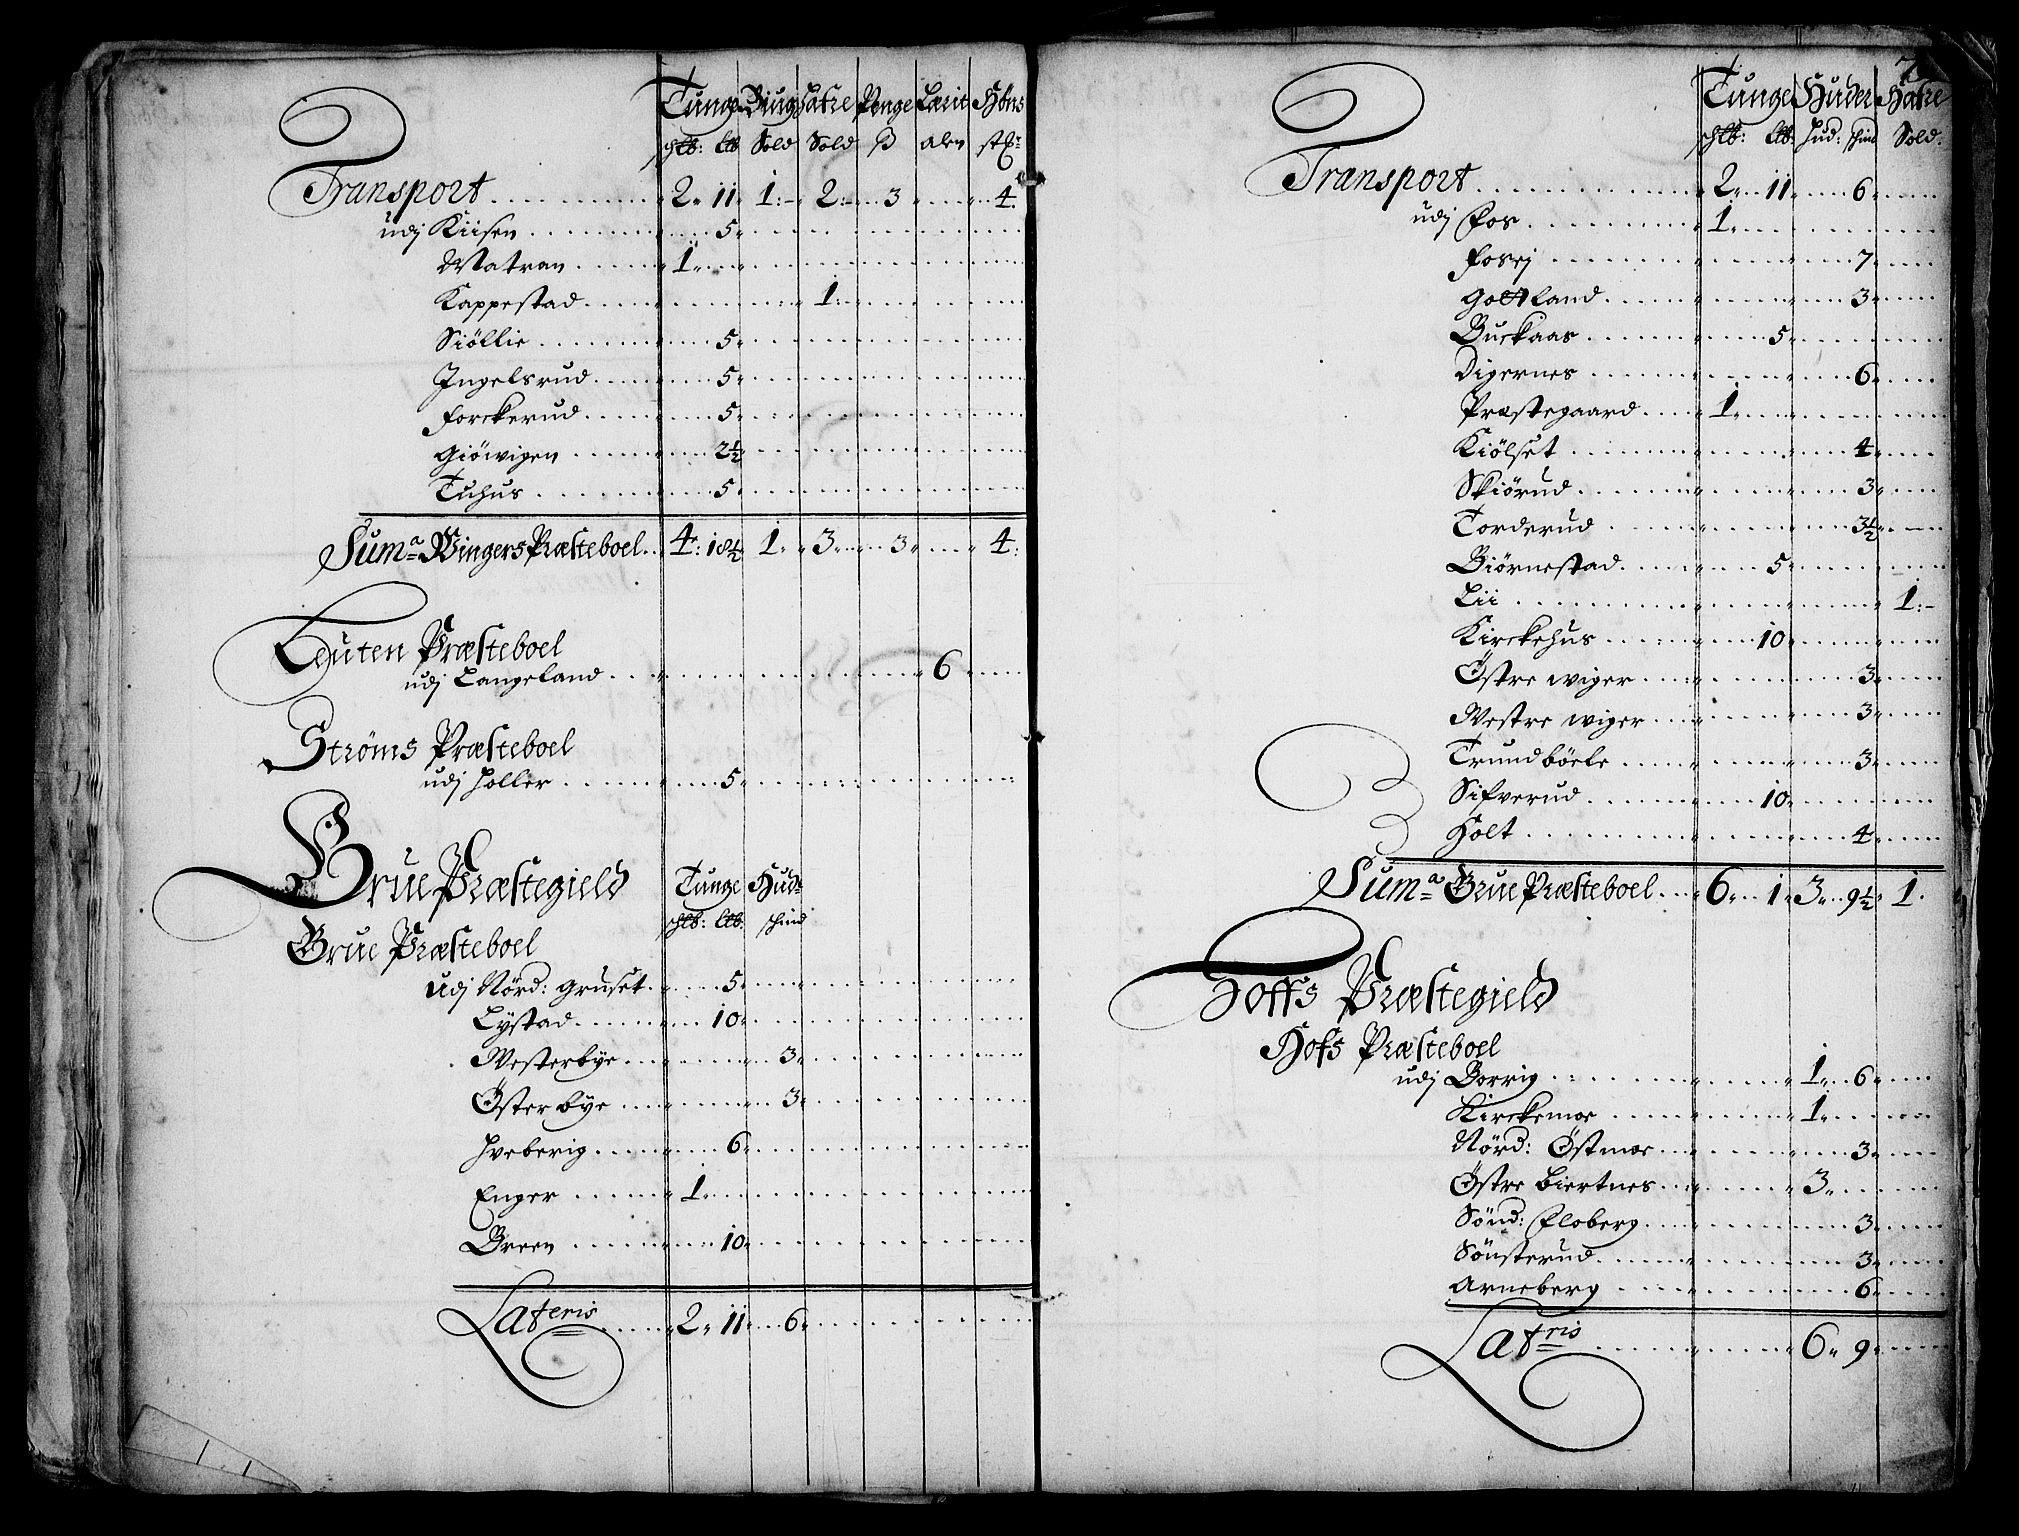 Tunge Biug Hafre Penge Lærit Høns
schlb: Ltb Sold Sold ß alen
Transport 2 11 1 2 3 4
udj Kiisen 5
Matran 1
Kappestad 1
Siöllie 5
Ingelsrud 5
Forckerud 5
Giöwigen 2½
Tuhus 5
Sumᵃ Wingers Præsteboel 4: 18½ 1 3 3 4
Euten Præsteboel
udj Langeland 6
Ströms Præsteboel
udj Holler 5
Grue Præstegield Tunge Hud:
schlb: Ltb: schind
Grue Præsteboel
udj Nörd: Gruset 5
Lÿstad 10
Westerbÿe 3
Österbÿe 3
Hveberig 6
Enger 1
Green 10
Lateris 2 11 6
Tunge Huder Hafre
schlb: Ltb: Hud: schind Sold:
Transport 2 11 6
udj Fos 1
Fosej 7
Gottland 3
Buckaas 5
Digernes 6
Præstegaard 1
Kiölset 4
Skiörud 3
Torderud 3½
Biörnestad 5
Lii 1
Kirckehus 10
Östre wiger 3
Westre wiger 3
Trundböele 3
Sifverud 10
Holt 4
Sumᵃ Grue Præsteboel 6 1 3 9½ 1
Hoffs Præstegield
Hofs Præsteboel
udj Borrig 1 6
Kirckemoe 1
Nörd: Östmoe 3
Östre Biertnes 3
Sönd: Floberg 3
Sönsterud 3
Arneberg 6
Latris 6 9